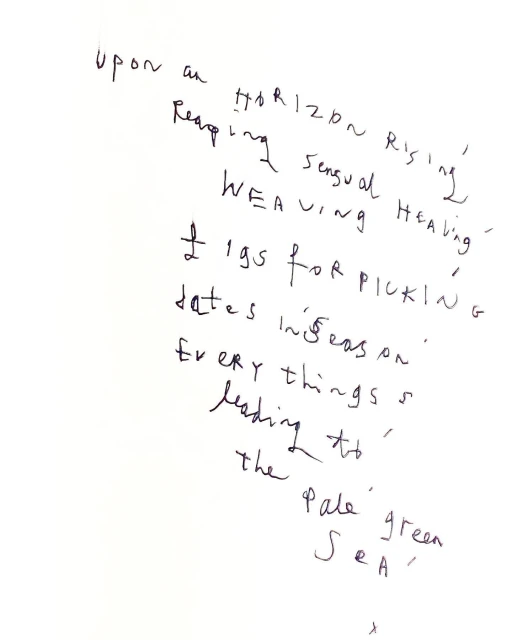 Upon an HORIZON RISING
Reaping sensual HEALing
WEAVING
figs foR PICKING
dates in Season
EveRY things
leading to
the pale green
SeA
x